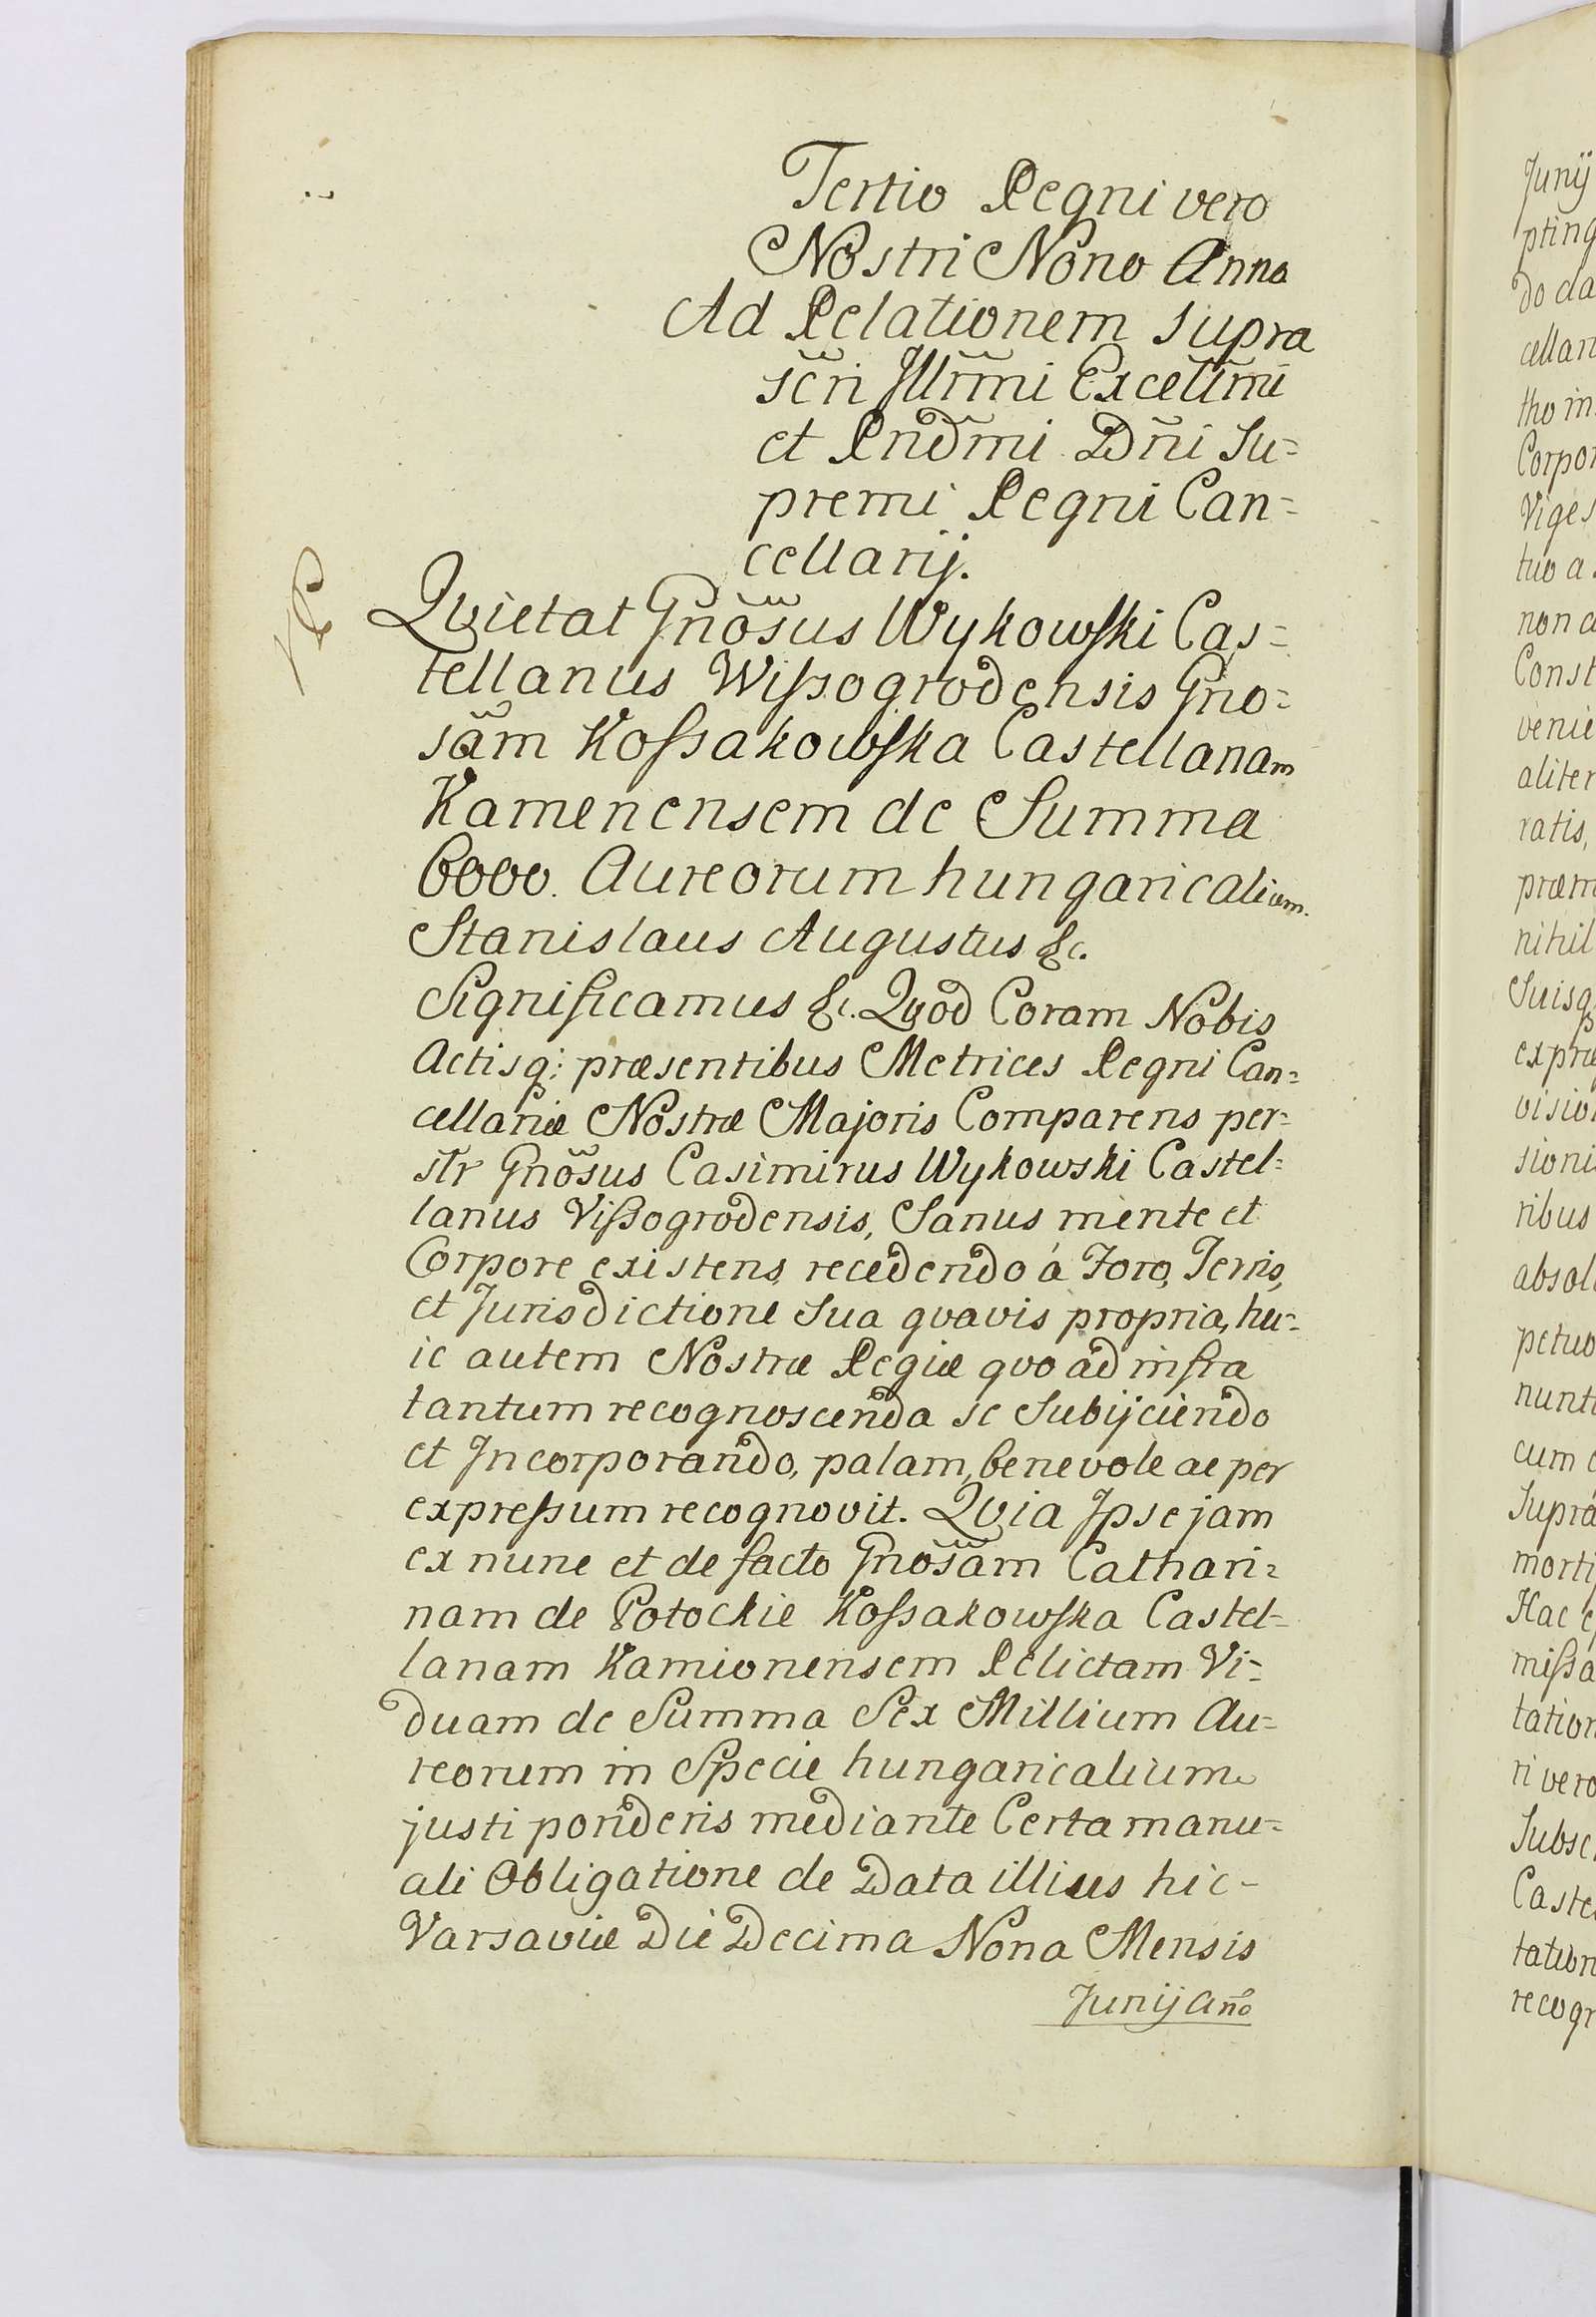 Tertio Regni vero
Nostri Nono Anno
Ad Relationem supra
scri Illrmi Excellmi
et Rndmi Dni Su=
premi Regni Can=
cellarij.
Qvietat Gnosus Wykowſki Cas=
tellanus Wiſsogrodensis Gno=
sam Koſsakowſka Castellanam
Kamenensem de Summa
6000. Aureorum hungaricalium.
Stanislaus Augustus &c.
Significamus &c. Qvod Coram Nobis
Actisq; præsentibus Metrices Regni Can=
cellariæ Nostræ Majoris Comparens per=
slr Gnosus Casimirus Wykowski Castel=
lanus Viſsogrodensis, Sanus mente et
Corpore existens recedendo á Foro, Terris,
et Jurisdictione Sua qvavis propria, hu=
ic autem Nostræ Regiæ qvo ad infra
tantum recognoscenda se Subijciendo
et Incorporando, palam, benevole ac per
expreſsum recognovit. Qvia Ipse jam
ex nunc et de facto Gnosam Cathari=
nam de Potockie Koſsakowſka Castel=
lanam Kamionensem Relictam Vi=
duam de Summa Sex Millium Au=
reorum in Specie hungaricalium
justi ponderis mediante Certa manu=
ali Obligatione de Data illius hic-
Varsaviæ Die Decima Nona Mensis
Junij Año
Junij
Corpor
Viges
Const
aliter
ratis,
nihil
Suisq
ribus
Supra
miſsa
ri vero